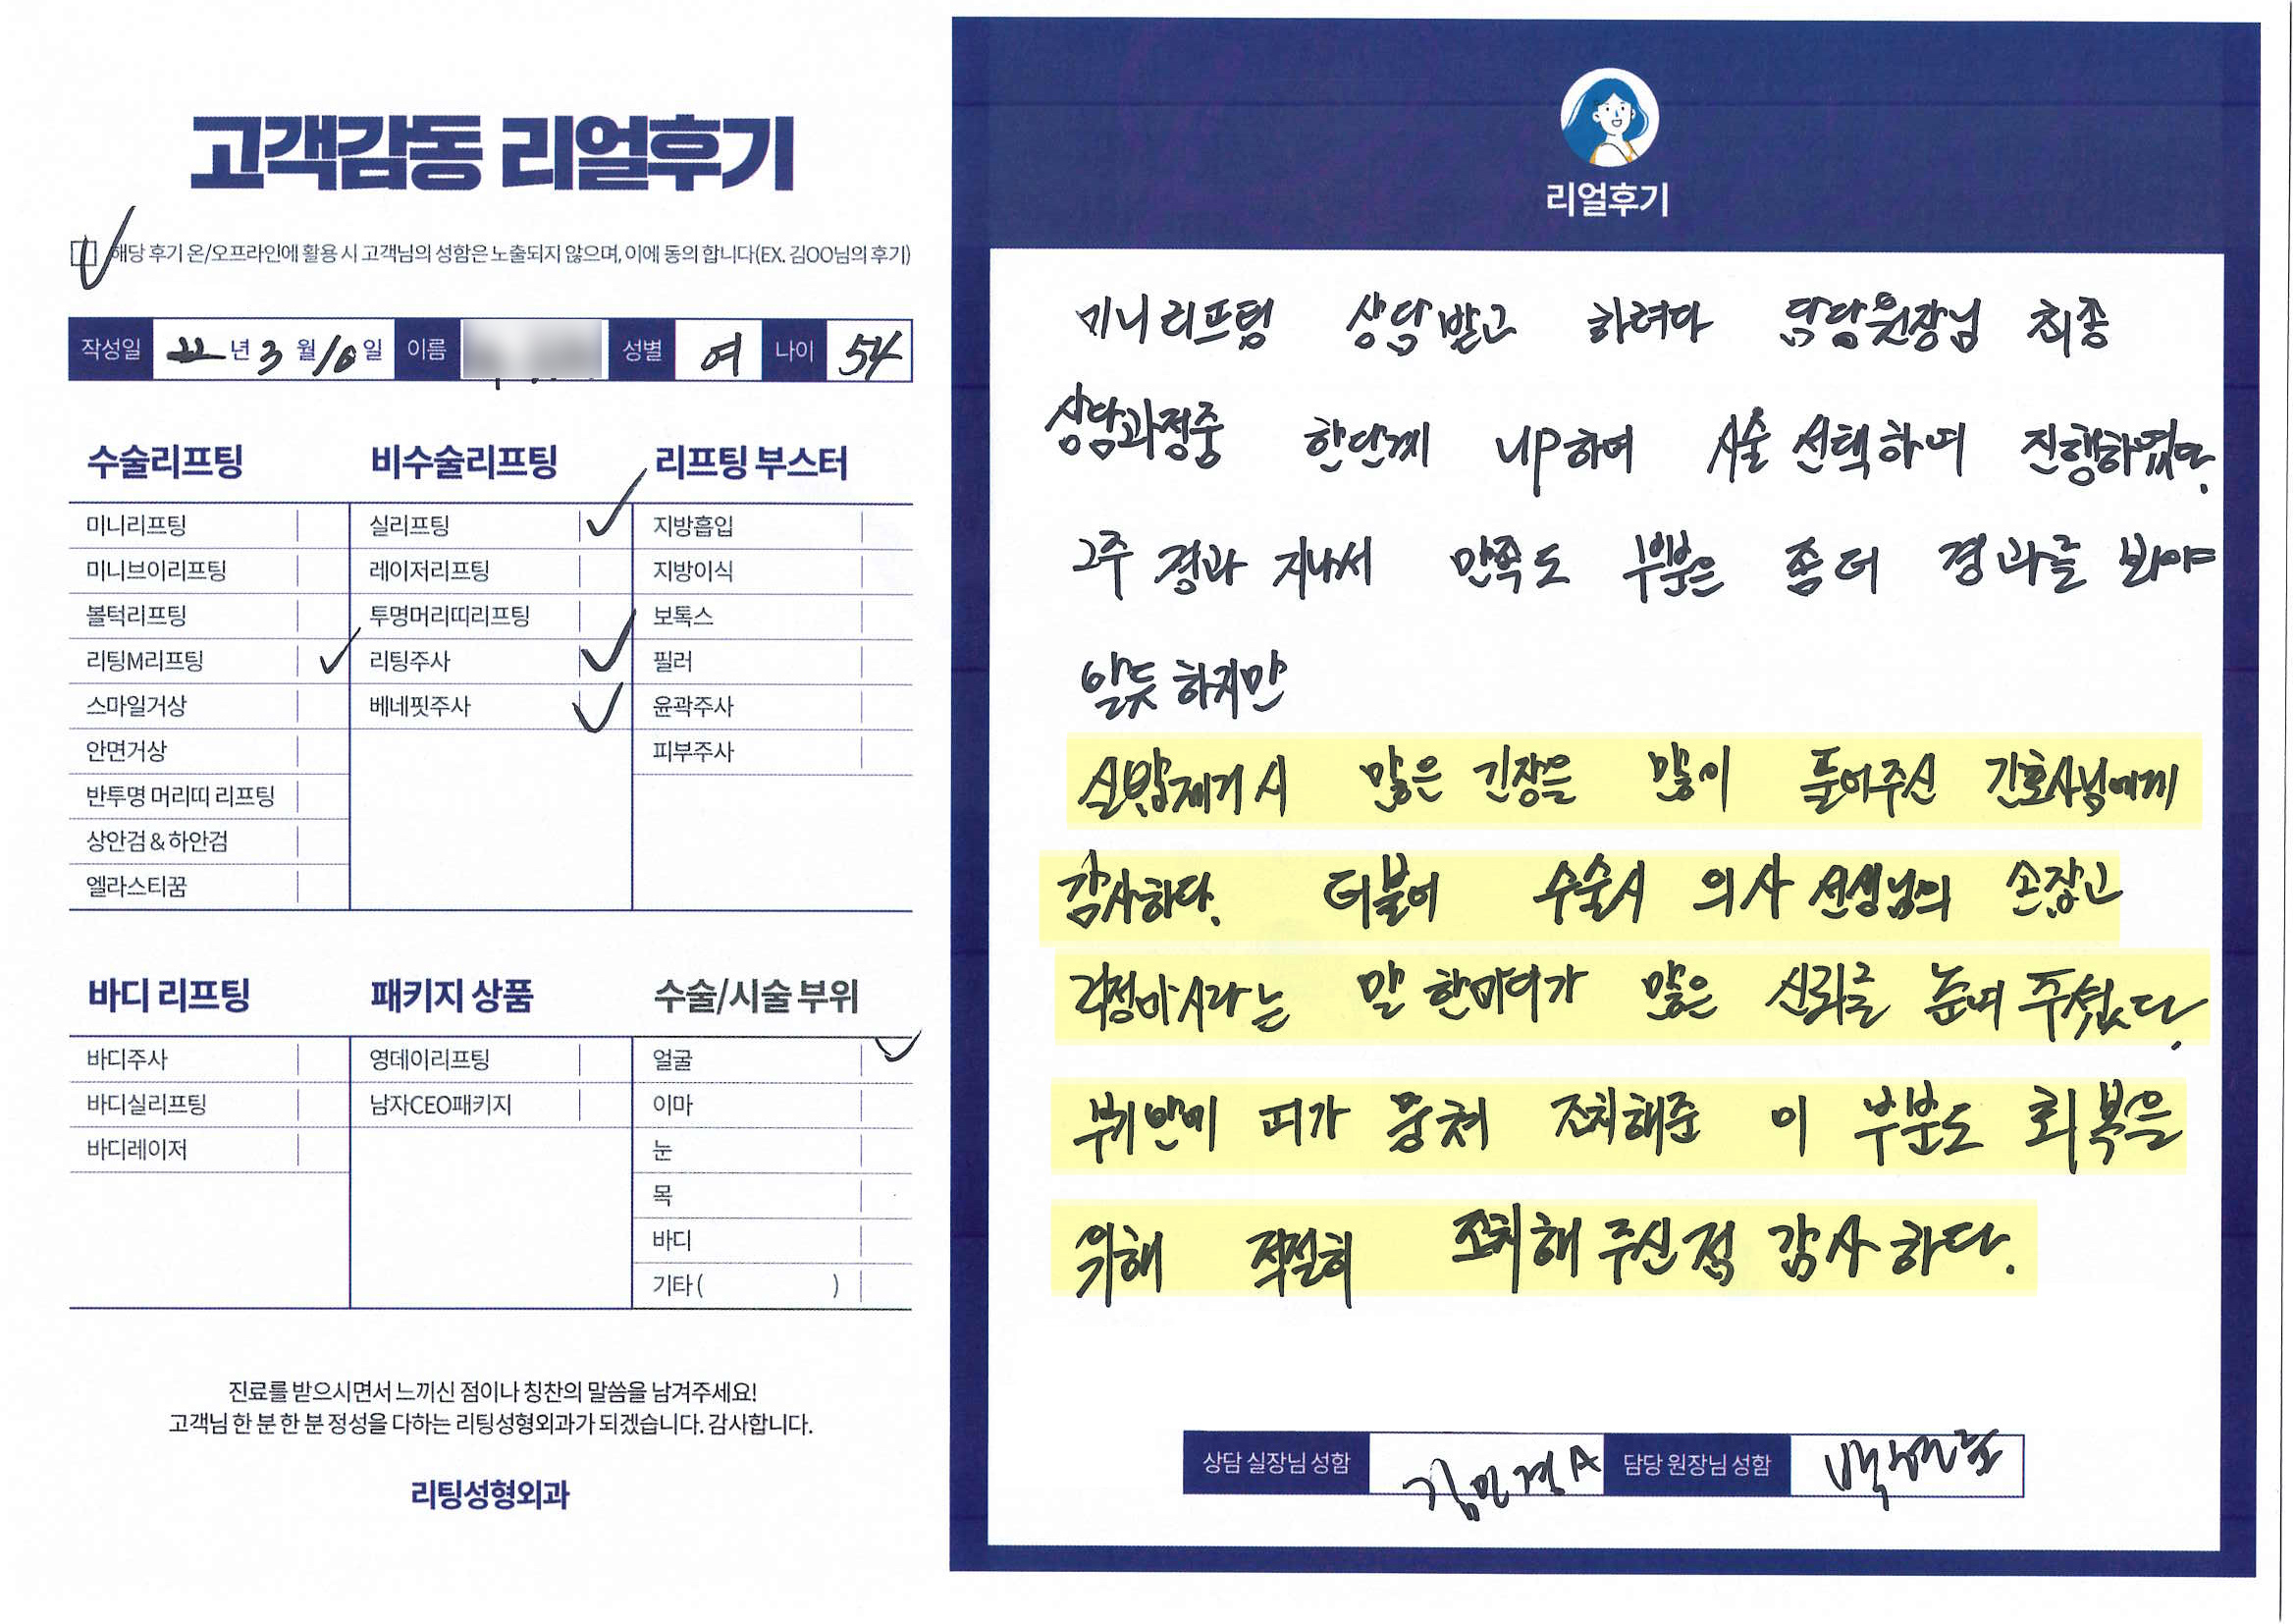 고객감동 리얼후기
해당 후기 온/오프라인에 활용 시 고객님의 성함은 노출되지 않으며, 이에 동의 합니다(EX. 김OO님의 후기)
작성일 22년 3월 10일 이름 성별 여 나이 54
수술리프팅
미니리프팅
미니브이리프팅
볼턱리프팅
리팅M리프팅
스마일거상
안면거상
반투명 머리띠 리프팅
상안검 & 하안검
엘라스티꿈
비수술리프팅
실리프팅
레이저리프팅
투명머리띠리프팅
리팅주사
베네핏주사
리프팅 부스터
지방흡입
지방이식
보톡스
필러
윤곽주사
피부주사
바디 리프팅
바디주사
바디실리프팅
바디레이저
패키지 상품
영데이리프팅
남자CEO패키지
수술/시술 부위
얼굴
이마
눈
목
바디
기타 ( )
진료를 받으시면서 느끼신 점이나 칭찬의 말씀을 남겨주세요!
고객님 한 분 한 분 정성을 다하는 리팅성형외과가 되겠습니다. 감사합니다.
리팅성형외과
리얼후기
미니리프팅 상담받고 하려다 담당원장님 최종
상담과정중 한단계 UP하여 시술 선택하여 진행하였다.
2주 경과 지나서 만족도 부분은 좀더 경과를 봐야
알듯 하지만
실밥제거시 많은 긴장을 많이 풀어주신 간호사님에게
감사하다. 더불어 수술시 의사선생님의 손잡고
걱정마시라는 말 한마디가 많은 신뢰를 준여 주셨다.
뒤안에 피가 뭉쳐 조치해준 이 부분도 회복을
위해 적절히 조치해 주신점 감사하다.
상담 실장님 성함 김민경A 담당 원장님 성함